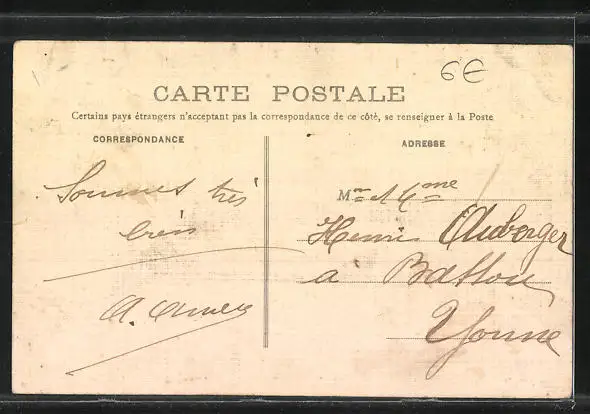 6€
CARTE POSTALE
Certains pays étrangers n'acceptant pas la correspondance de ce côté, se renseigner à la Poste
CORRESPONDANCE
ADRESSE
Sommes très
bien
A.
Mr et Mme
Henri Auberger
a Bassou
Yonne